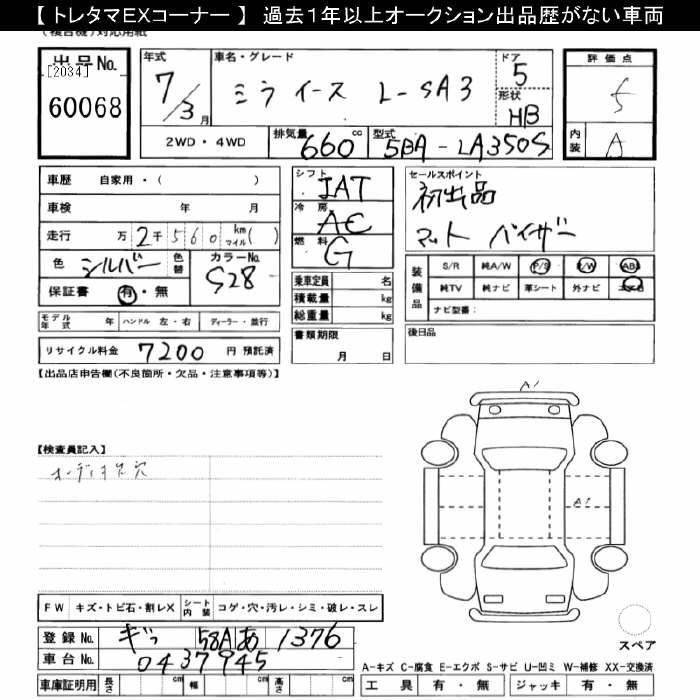 【 トレタマEXコーナー 】 過去1年以上オークション出品歴がない車両
(複合機)対応用紙
出品No.
[2034]
60068
年式
7/3月
車名・グレード
ミライース L-SA3
ドア
5
形状
HB
評価点
5
内装
A
2WD・4WD
排気量
660cc
型式
5BA-LA350S
車歴 自家用・( )
車検 年 月
走行 万2千560 kmマイル( )
色 シルバー 色替 カラーNo. S28
保証書 有・無
モデル年式 年 ハンドル 左・右 ディーラー・並行
リサイクル料金 7200 円 預託済
シフト IAT
冷房 AC
燃料 G
乗車定員 名
積載量 kg
総重量 kg
書類期限
月 日
セールスポイント
初出品
マット バイザー
装備品
S/R 純A/W P/S P/W ABS
純TV 純ナビ 革シート 外ナビ
ナビ型番:
後日品
【出品店申告欄(不良箇所・欠品・注意事項等)】
【検査員記入】
A1
A1
FW キズ・トビ石・割レX シート内装 コゲ・穴・汚レ・シミ・破レ・スレ
登録No. ギフ 58A あ 1376
車台No. 0437945
車庫証明用 長さ cm 幅 cm 高さ cm
スペア
A-キズ C-腐食 E-エクボ S-サビ U-凹ミ W-補修 XX-交換済
工具 有・無 ジャッキ 有・無